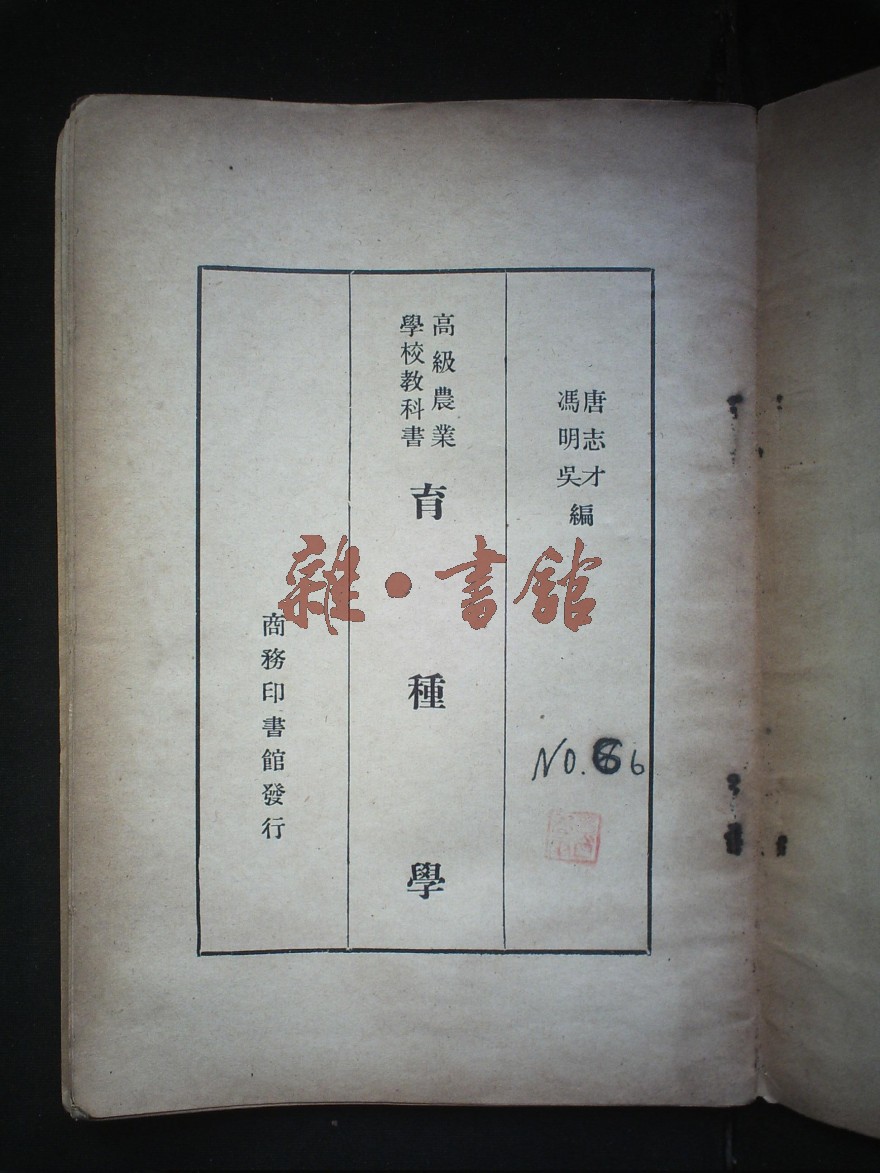 唐志才
馮明吳
編
高級農業
學校教科書
育種學
商務印書館發行
雜·書館
NO. 66